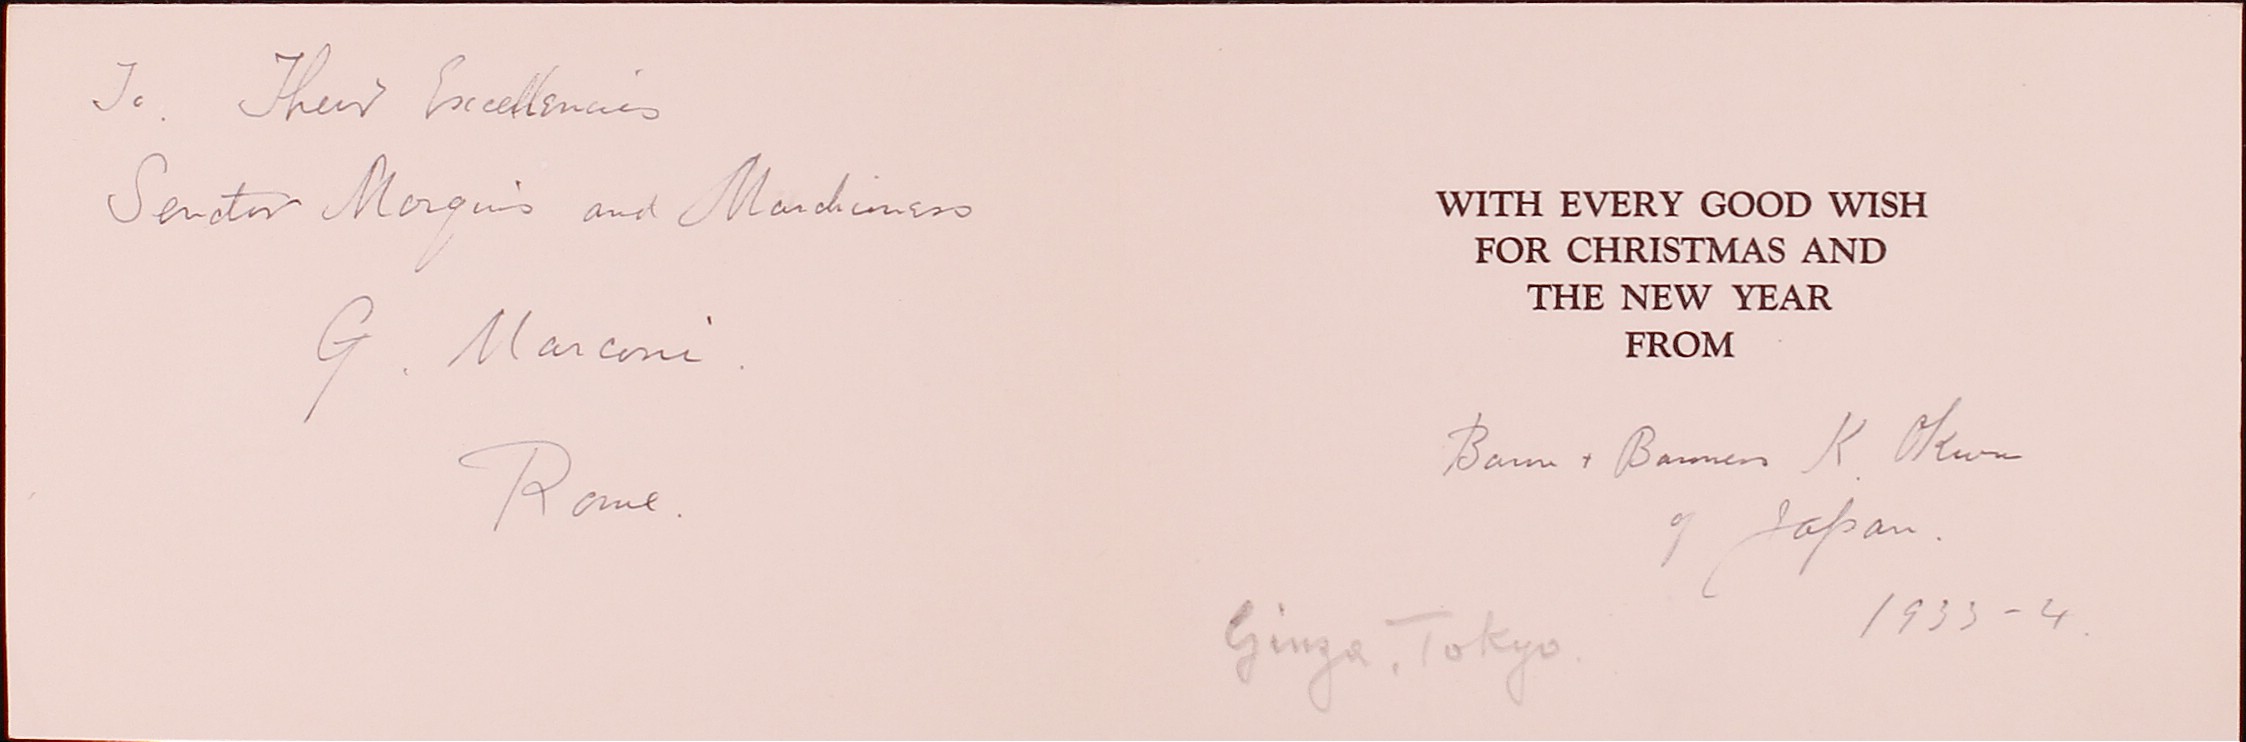 To. Their Excellencies
Senator Morquis and Marchioness
G. Marconi.
Rome.
WITH EVERY GOOD WISH
FOR CHRISTMAS AND
THE NEW YEAR
FROM
Baron + Baroness K. Okura
of Japan.
1933-4.
Ginza, Tokyo.